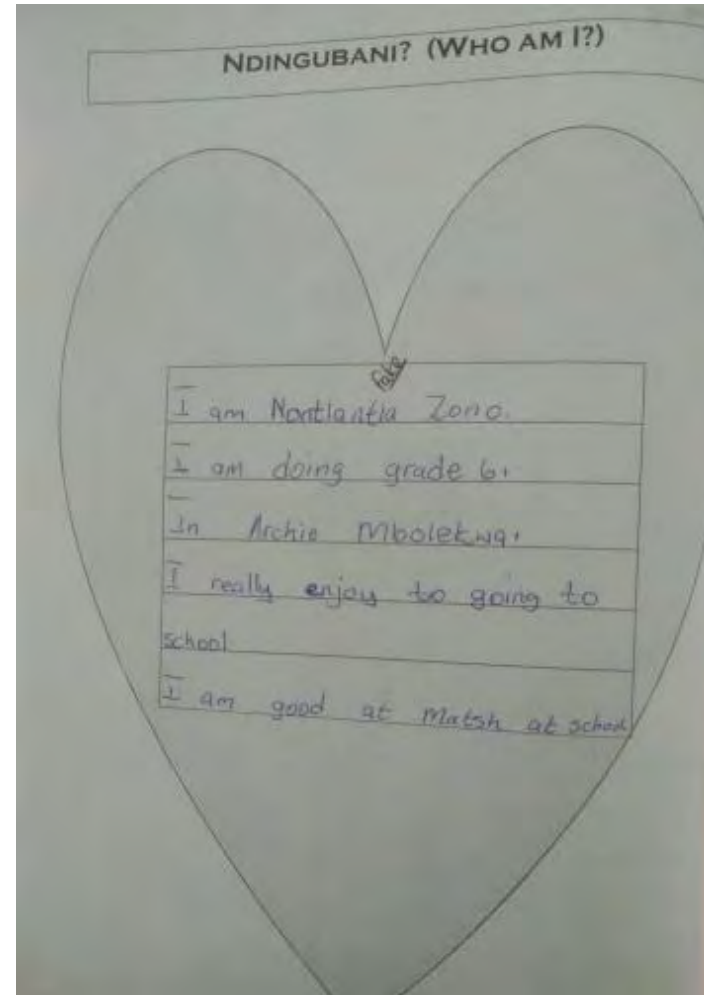 NDINGUBANI? (WHO AM I?)
fake
I am Nontlantla Zono.
I am doing grade 6.
In Archie Mbolekwa.
I really enjoy to going to
school
I am good at Matsh at school